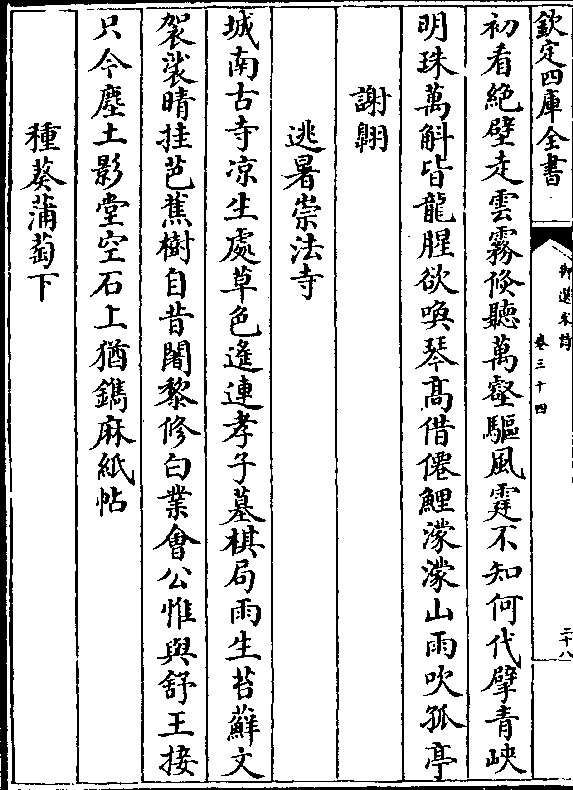 欽定四庫全書
御選宋詩
卷三十四
二十八
初看絶壁走雲霧倐聽萬壑驅風霆不知何代擘青峽
明珠萬斛皆龍腥欲喚琴髙借僊鯉濛濛山雨吹孤亭
謝翺
逃暑崇法寺
城南古寺凉生處草色遙連孝子墓棋局雨生苔蘚文
袈裟晴挂芭蕉樹自昔闍黎修白業會公惟與舒王接
只今塵土影堂空石上猶鐫麻紙帖
種葵蒲萄下